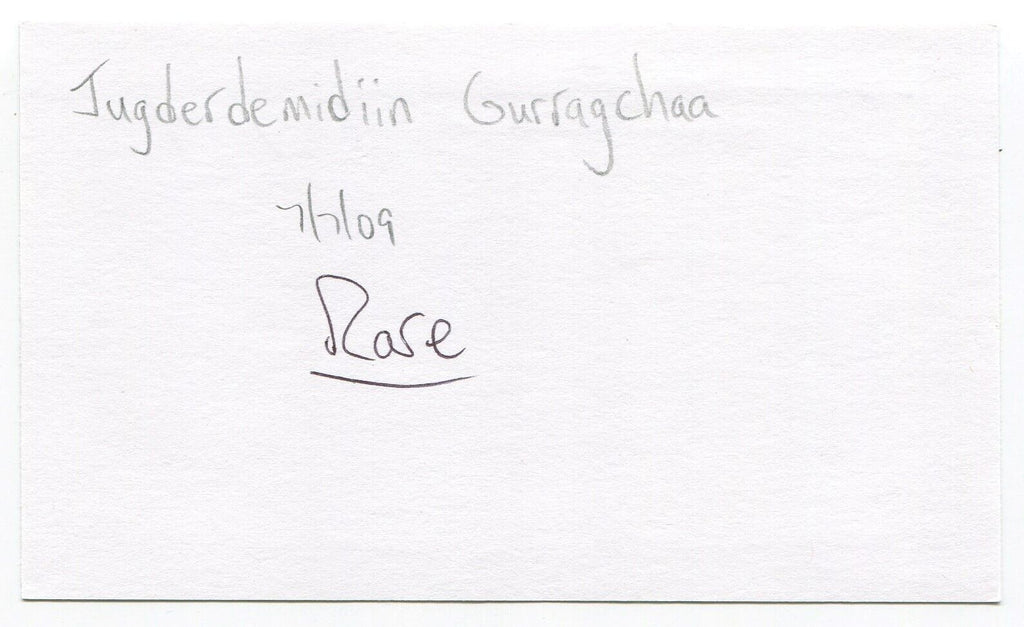 Jugderdemidiin Gurragchaa
7/7/09
Rare